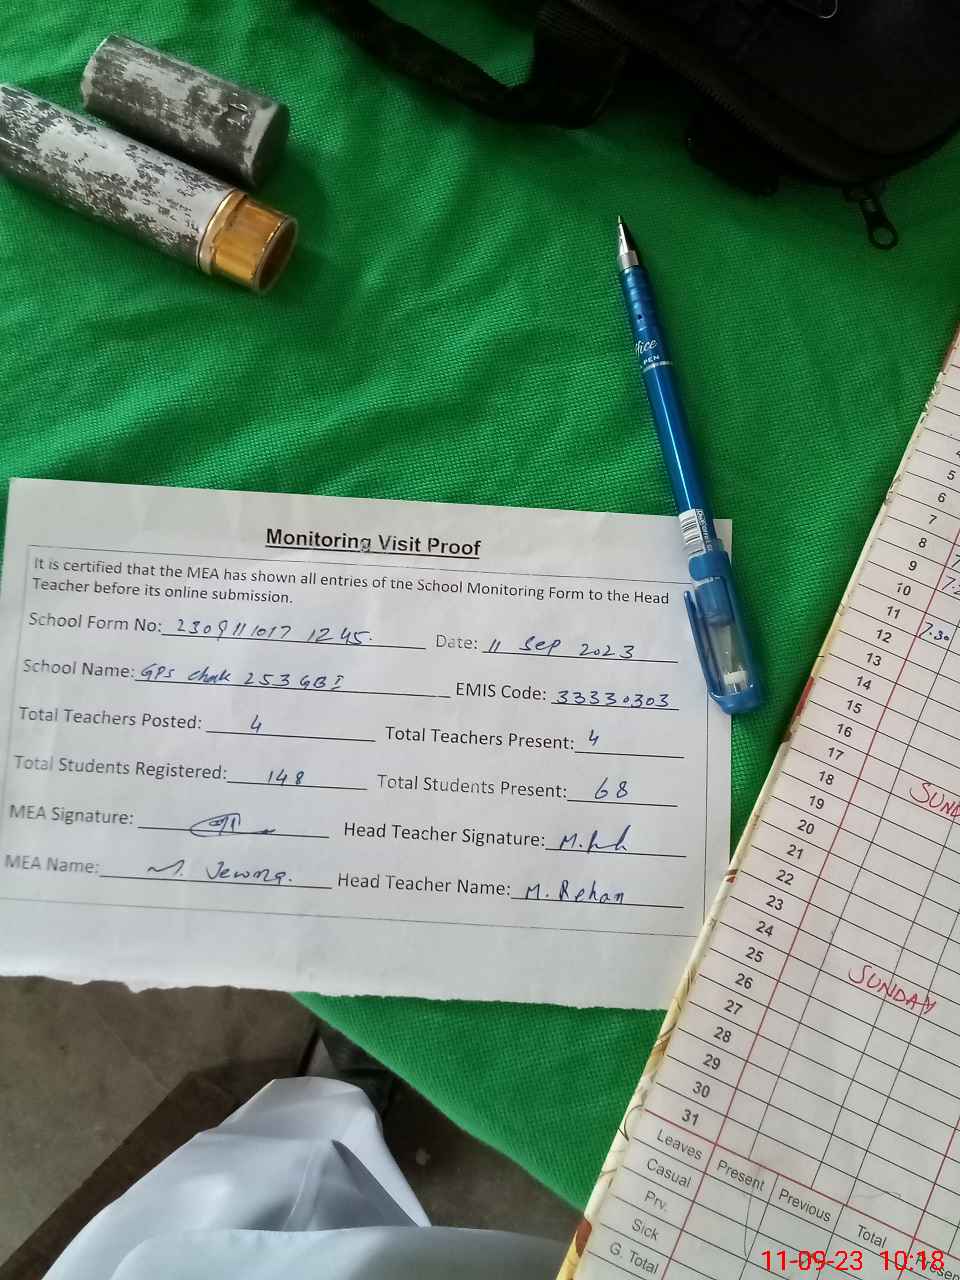 Monitoring Visit Proof
It is certified that the MEA has shown all entries of the School Monitoring Form to the Head
Teacher before its online submission.
School Form No: 2309111017 1245. Date: 11 Sep 2023
School Name: GPS Chak 253 GB I EMIS Code: 33330303
Total Teachers Posted: 4 Total Teachers Present: 4
Total Students Registered: 148 Total Students Present: 68
MEA Signature: Head Teacher Signature:
MEA Name: Head Teacher Name: M. Rehan
ffice
PEN
5
6
7
8
9
10
11 7.30
12
13
14
15
16
17
18
19
20
21
22
23
24
25
26
27
28
29
30
31
SUND
SUNDAY
Leaves Present Previous Total Presen
Casual
Prv.
Sick
G. Total
11-09-23 10:18